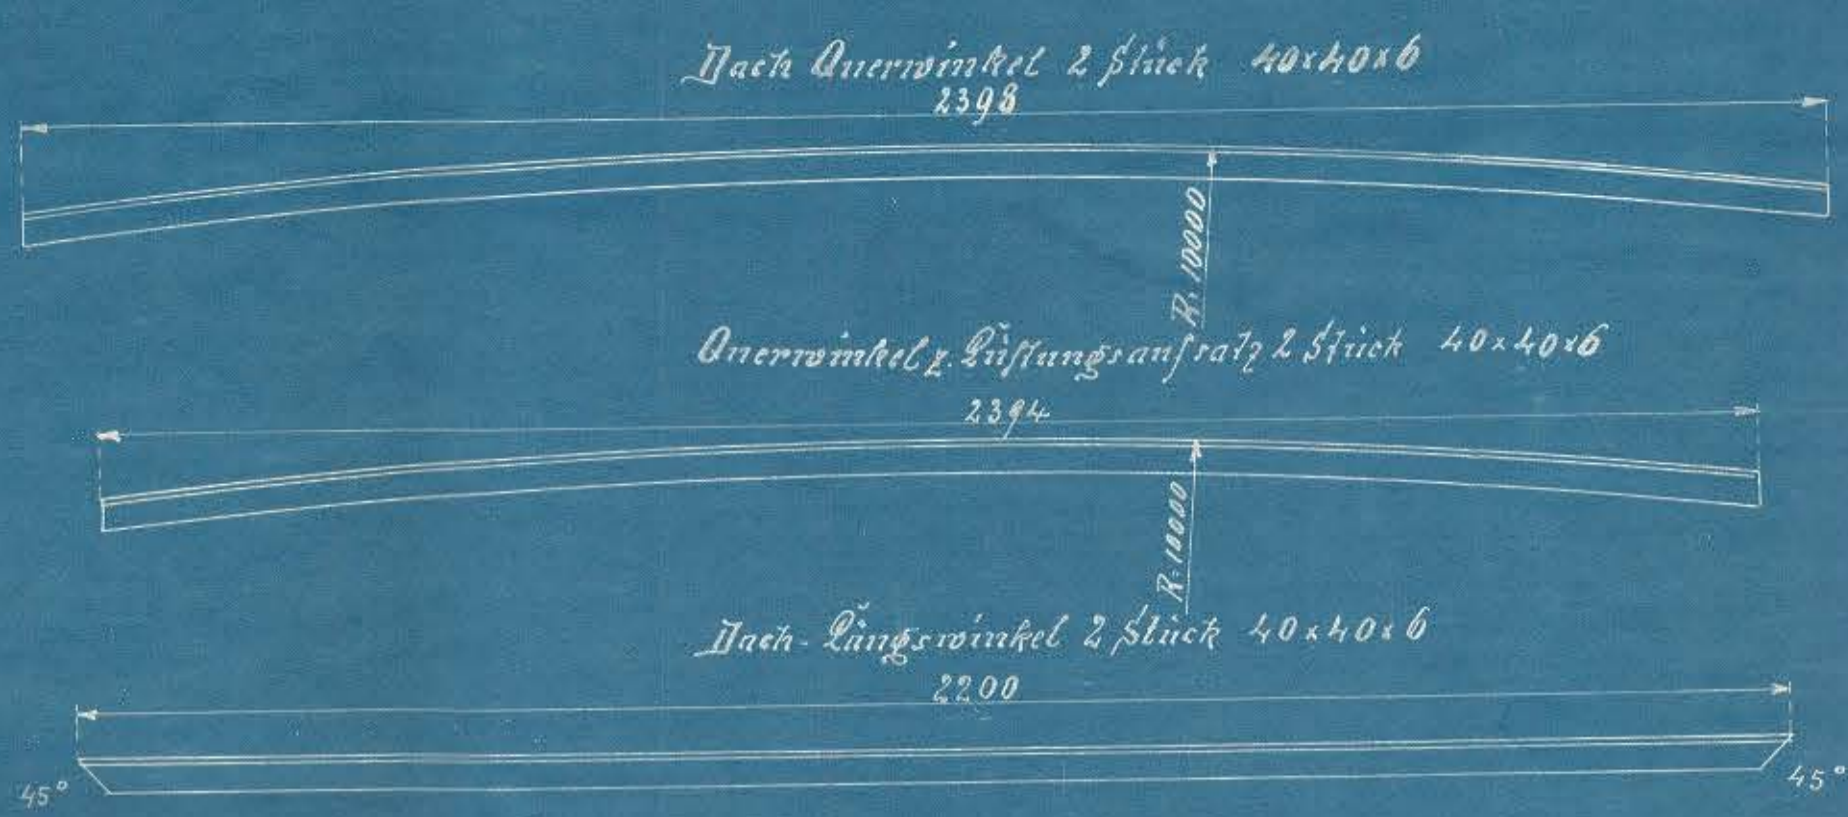 Dach Querwinkel 2 Stück 40x40x6
2398
R=10000
Querwinkel z. Lüftungsaufsatz 2 Stück 40x40x6
2394
R=10000
Dach-Längswinkel 2 Stück 40x40x6
2200
45° 45°